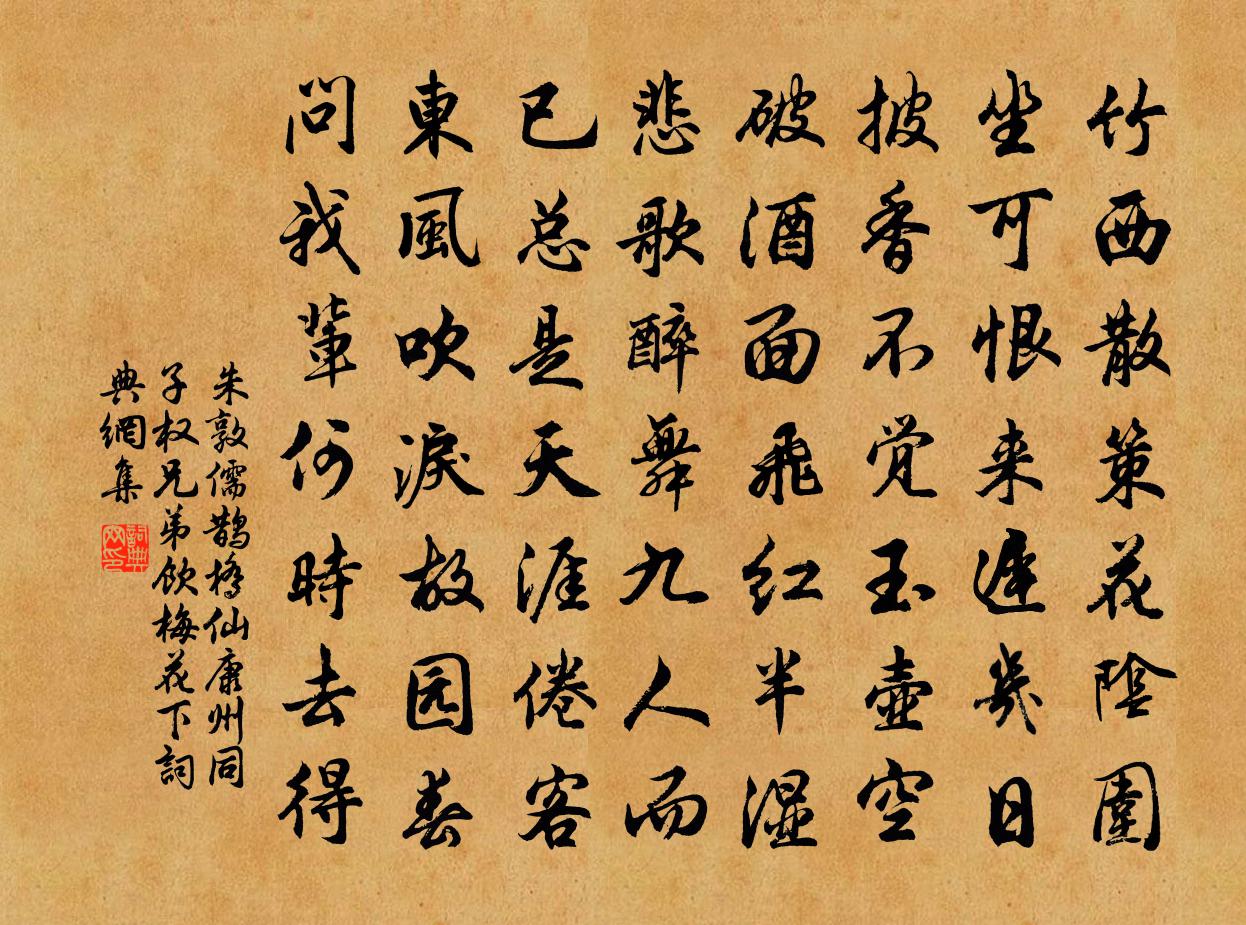 竹西散策花陰圍
坐可恨来遲幾日
披香不觉玉壺空
破酒面飛红半湿
悲歌醉舞九人而
已总是天涯倦客
東風吹淚故园春
問我輩何時去得
朱敦儒鹊橋仙康州同
子权兄弟飲梅花下詞
典網集
詞典网印